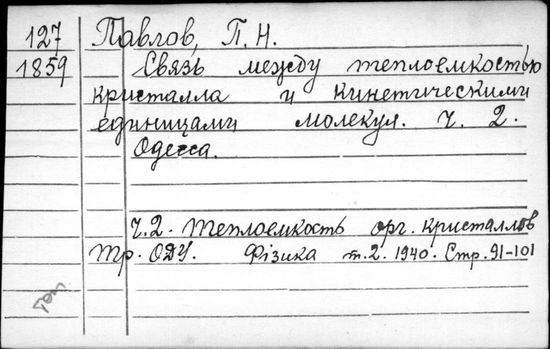 127 Павлов, П. Н.
1859 Связь между теплоемкостью
кристалла и кинетическими
единицами молекул. Ч. 2.
Одесса.
Ч.2. Теплоемкость орг. кристаллов
Тр. ОДУ. Фізика т.2. 1940. Стр. 91-101